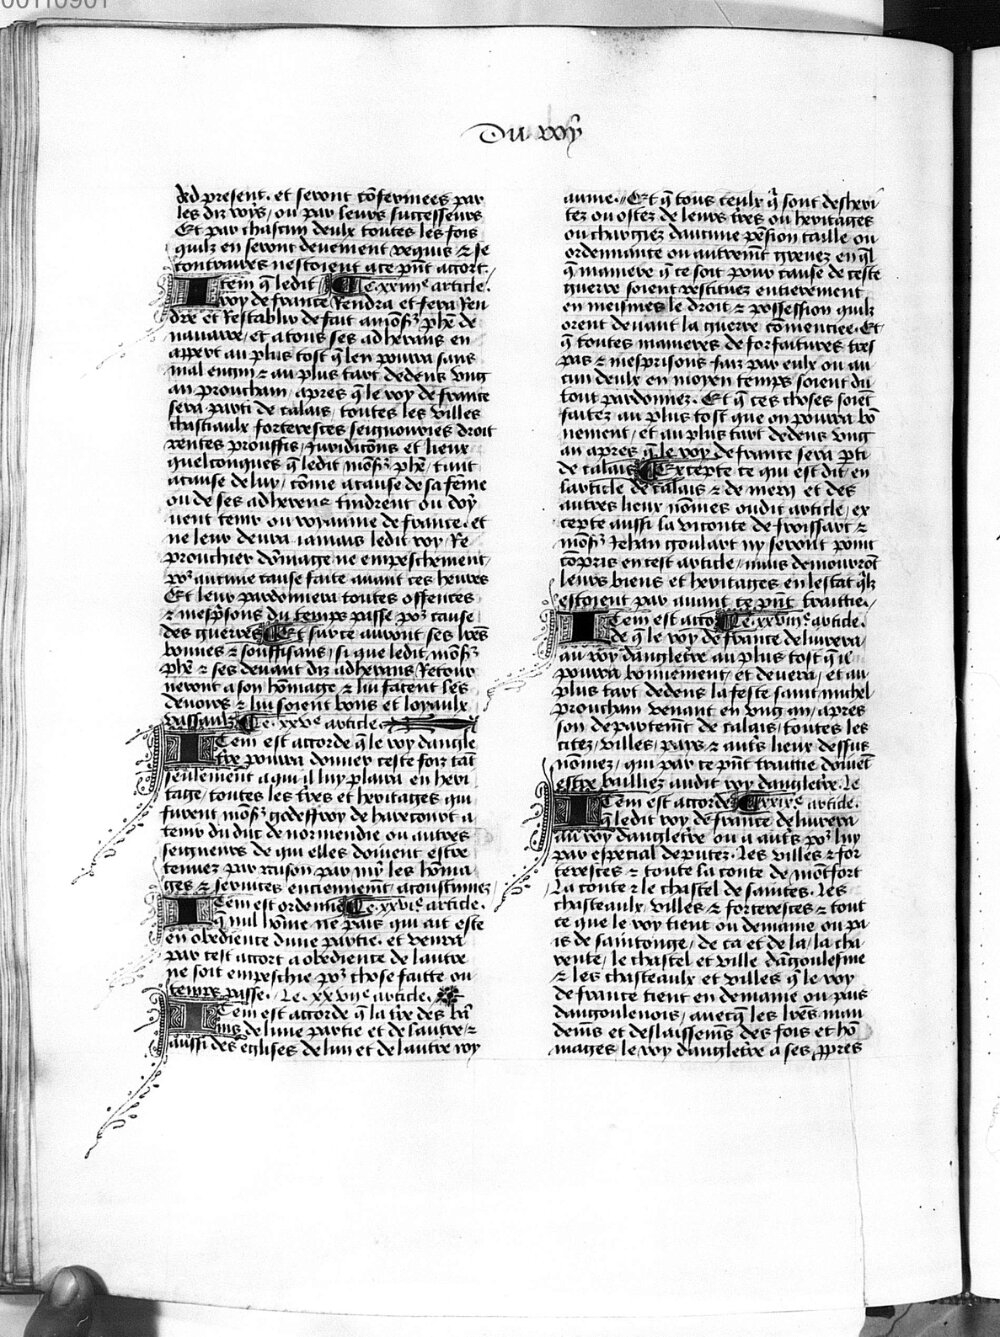 Du roy
ded present. et seront cōfermees par
les diz roys, ou par leurs successeurs
Et par chascun deulx toutes les fois
quilz en seront deuement requis & se
contraires nestoient a ce pñt acort.
Item q̄ ledit Le xxiiiiᵉ article.
roy de france Rendra et fera Ren
dre et Restablir de fait a monsʳ phē de
nauarre, et a tous ses adherans en
appert au plus tost q̄ len pourra sans
mal engin & au plus tart dedens vng
an prouchain, apres q̄ le roy de france
sera parti de calais, toutes les villes
chasteaulx forteresces seignouries droit
rentes prouffis, Juridicōns et lieux
quelconques q̄ ledit monsʳ phē, tint
a cause de luy, cōme a cause de sa fēme
ou de ses adherens tindrent ou doy
uent tenir ou royaume de france. et
ne leur deura iamais ledit roy Re
prouchier dōmage ne empeschement,
poʳ aucune cause faite auant ces heures
Et leur pardonnera toutes offences
& mesprisons du temps passe poʳ cause
des guerres Et sur ce auront ses lres
bonnes & souffisans, si que ledit monsʳ
phē & ses deuant diz adherans Retour
neront a son hōmage & lui facent les
deuoirs & lui soient bons et loyaulx
vassaulx Le. xxvᵉ article.
Item est accorde q̄ le roy dangle
tre pourra donner ceste fois tant
seulement a qui il luy plaira en heri
tage, toutes les tres et heritages qui
furent monsʳ godeffroy de harecourt a
tenir du duc de normendie ou autres
seigneurs de qui elles doiuent estre
tenuez par raison par my les hōma
ges & seruices enciennemt acoustumez
Item est ordenne Le. xxviᵉ article.
q̄ nul hōme ne pais qui ait este
en obedience dune partie. et venra
par cest accort a obedience de lautre
ne soit empeschie poʳ chose faitte ou
temps passe. Le. xxviiᵉ article.
Item est accorde q̄ la tre des bā
nis de lune partie et de lautre, &
aussi des eglises de lun et de lautre roy
aume. Et q̄ tous ceulx q̄ sont desheri
tez ou ostez de leurs tres ou heritages
ou chargiez daucune pēsion taille ou
ordennance ou autremt greuez en q̄l
q̄ maniere q̄ ce soit pour cause de ceste
guerre soient restituez entierement
en meismes le droit & possession quilz
orent deuant la guerre cōmencee. Et
q̄ toutes manieres de forfaitures tres
pas & mesprisons faiz par eulx ou au
cun deulx en moyen temps soient du
tout pardonnez. Et q̄ ces choses soiēt
faitez au plus tost que on pourra bō
nement, et au plus tart dedens vng
an apres q̄ le roy de france sera pti
de calais Excepte ce qui est dit en
larticle de calais & de merq et des
autres lieux nōmes oudit article, ex
cepte aussi la viconte de froissart &
monsʳ Jehan goulart ny seront point
cōpris en cest article, mais demourrōt
leurs biens et heritages en lestat q̄lz
estoient par auant ce pñt traittie.
Item est acco Le xxviiiᵉ article.
de q̄ le roy de france deliurera,
au roy dangletre au plus tost q̄ le
pourra bonnement, et deuera, et au
plus tart dedens la feste saint michel
prouchain venant en vng an, apres
son departemt de calais, toutes les
citez, villes, pays & auts lieux dessus
nōmez, qui par ce pñt traittie doiuēt
estre bailliez audit roy dangletre. Le
Item est accorde xxixᵉ article.
q̄ ledit roy de france deliurera
au roy dangletre ou a auts poʳ luy
par especial deputez. Les villes & for
teresces & toute la conte de mōtfort
La conte & le chastel de saintes. Les
chasteaulx villes & forteresces & tout
ce que le roy tient ou demaine ou pa
is de saintonge, de ca et de la, la cha
rente, le chastel et ville dāgoulesme
& les chasteaulx et villes q̄ le roy
de france tient en demaine ou pais
dangoulenois, auecq̄ les lres man
demens et deslaissemens des fois et hō
mages le roy dangletre a ses ppres